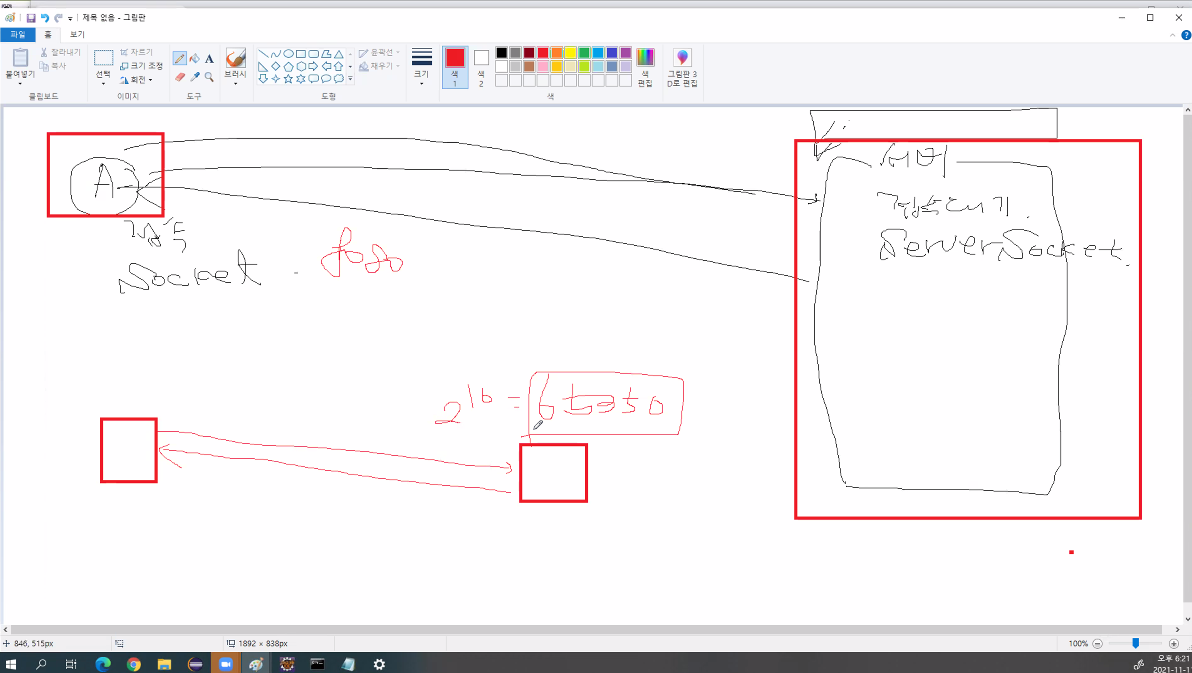 제목 없음 - 그림판
파일
홈
보기
붙여넣기
잘라내기
복사
클립보드
선택
자르기
크기 조정
회전
이미지
A
도구
브러시
도형
윤곽선
채우기
크기
색
1
색
2
색
편집
색
그림판 3
D로 편집
A
서버
접속대기
접속
ServerSocket
Socket
2^16 =
846, 515px
1892 × 838px
100%
오후 6:21
2021-11-1